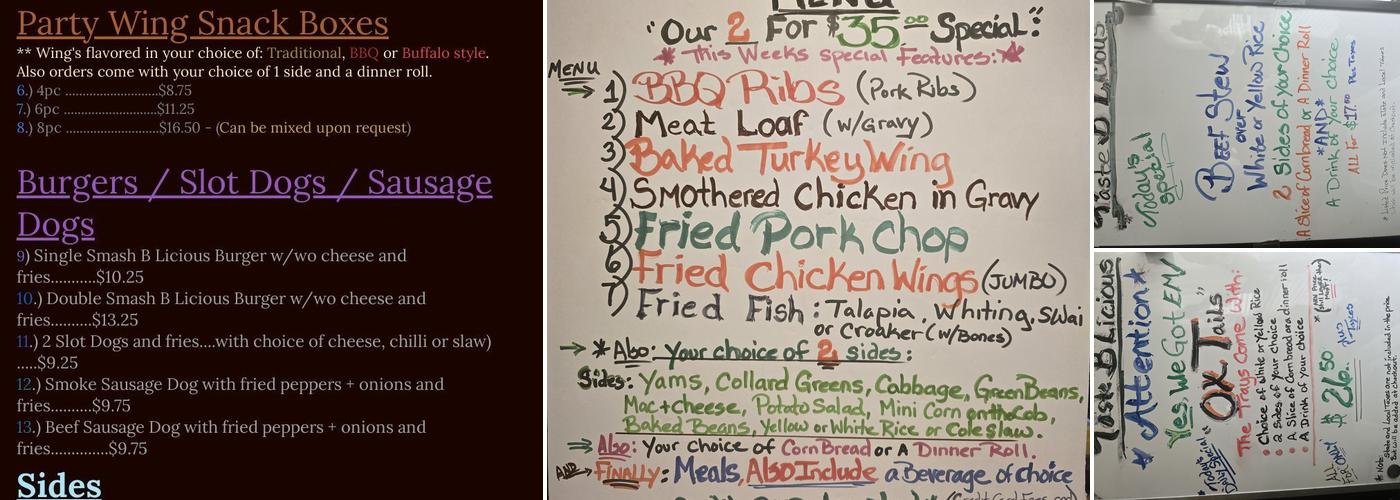 Party Wing Snack Boxes
** Wing's flavored in your choice of: Traditional, BBQ or Buffalo style.
Also orders come with your choice of 1 side and a dinner roll.
6.) 4pc ............................$8.75
7.) 6pc ............................$11.25
8.) 8pc ............................$16.50 - (Can be mixed upon request)
Burgers / Slot Dogs / Sausage
Dogs
9) Single Smash B Licious Burger w/wo cheese and
fries...........$10.25
10.) Double Smash B Licious Burger w/wo cheese and
fries..........$13.25
11.) 2 Slot Dogs and fries....with choice of cheese, chilli or slaw)
.....$9.25
12.) Smoke Sausage Dog with fried peppers + onions and
fries..........$9.75
13.) Beef Sausage Dog with fried peppers + onions and
fries..............$9.75
Sides
MENU
"Our 2 For $35.00 Special":
*This Weeks special Features:*
MENU
1) BBQ Ribs (Pork Ribs)
2) Meat Loaf (w/Gravy)
3) Baked Turkey Wing
4) Smothered Chicken in Gravy
5) Fried Pork Chop
6) Fried Chicken Wings (JUMBO)
7) Fried Fish: Talapia, Whiting, Swai
or Croaker (w/Bones)
*Also: Your choice of 2 sides:
Sides: Yams, Collard Greens, Cabbage, Green Beans,
Mac+cheese, Potato Salad, Mini Corn on the Cob,
Baked Beans, Yellow or White Rice or Cole slaw.
Also: Your choice of Corn Bread or A Dinner Roll.
AND FINALLY: Meals, Also Include a Beverage of choice
Taste B Licious
Today's
special
Beef Stew
over
White or Yellow Rice
2 Sides of Your Choice
A Slice of Cornbread or A Dinner Roll
*AND*
A Drink of Your choice
All For $17.50 Plus Taxes
Taste B Licious
*Attention*
Yes, We Got EM
"Today's
Daily Special"
"Ox Tails"
The Trays Come With:
Choice of White or Yellow Rice
2 Sides of Your choice
A Slice of Corn bread or a dinner roll
A Drink of Your choice
All only
FOR
$26.50
Plus
Taxes
*Note: State and Local Taxes are not included in the price
but will be added at checkout.